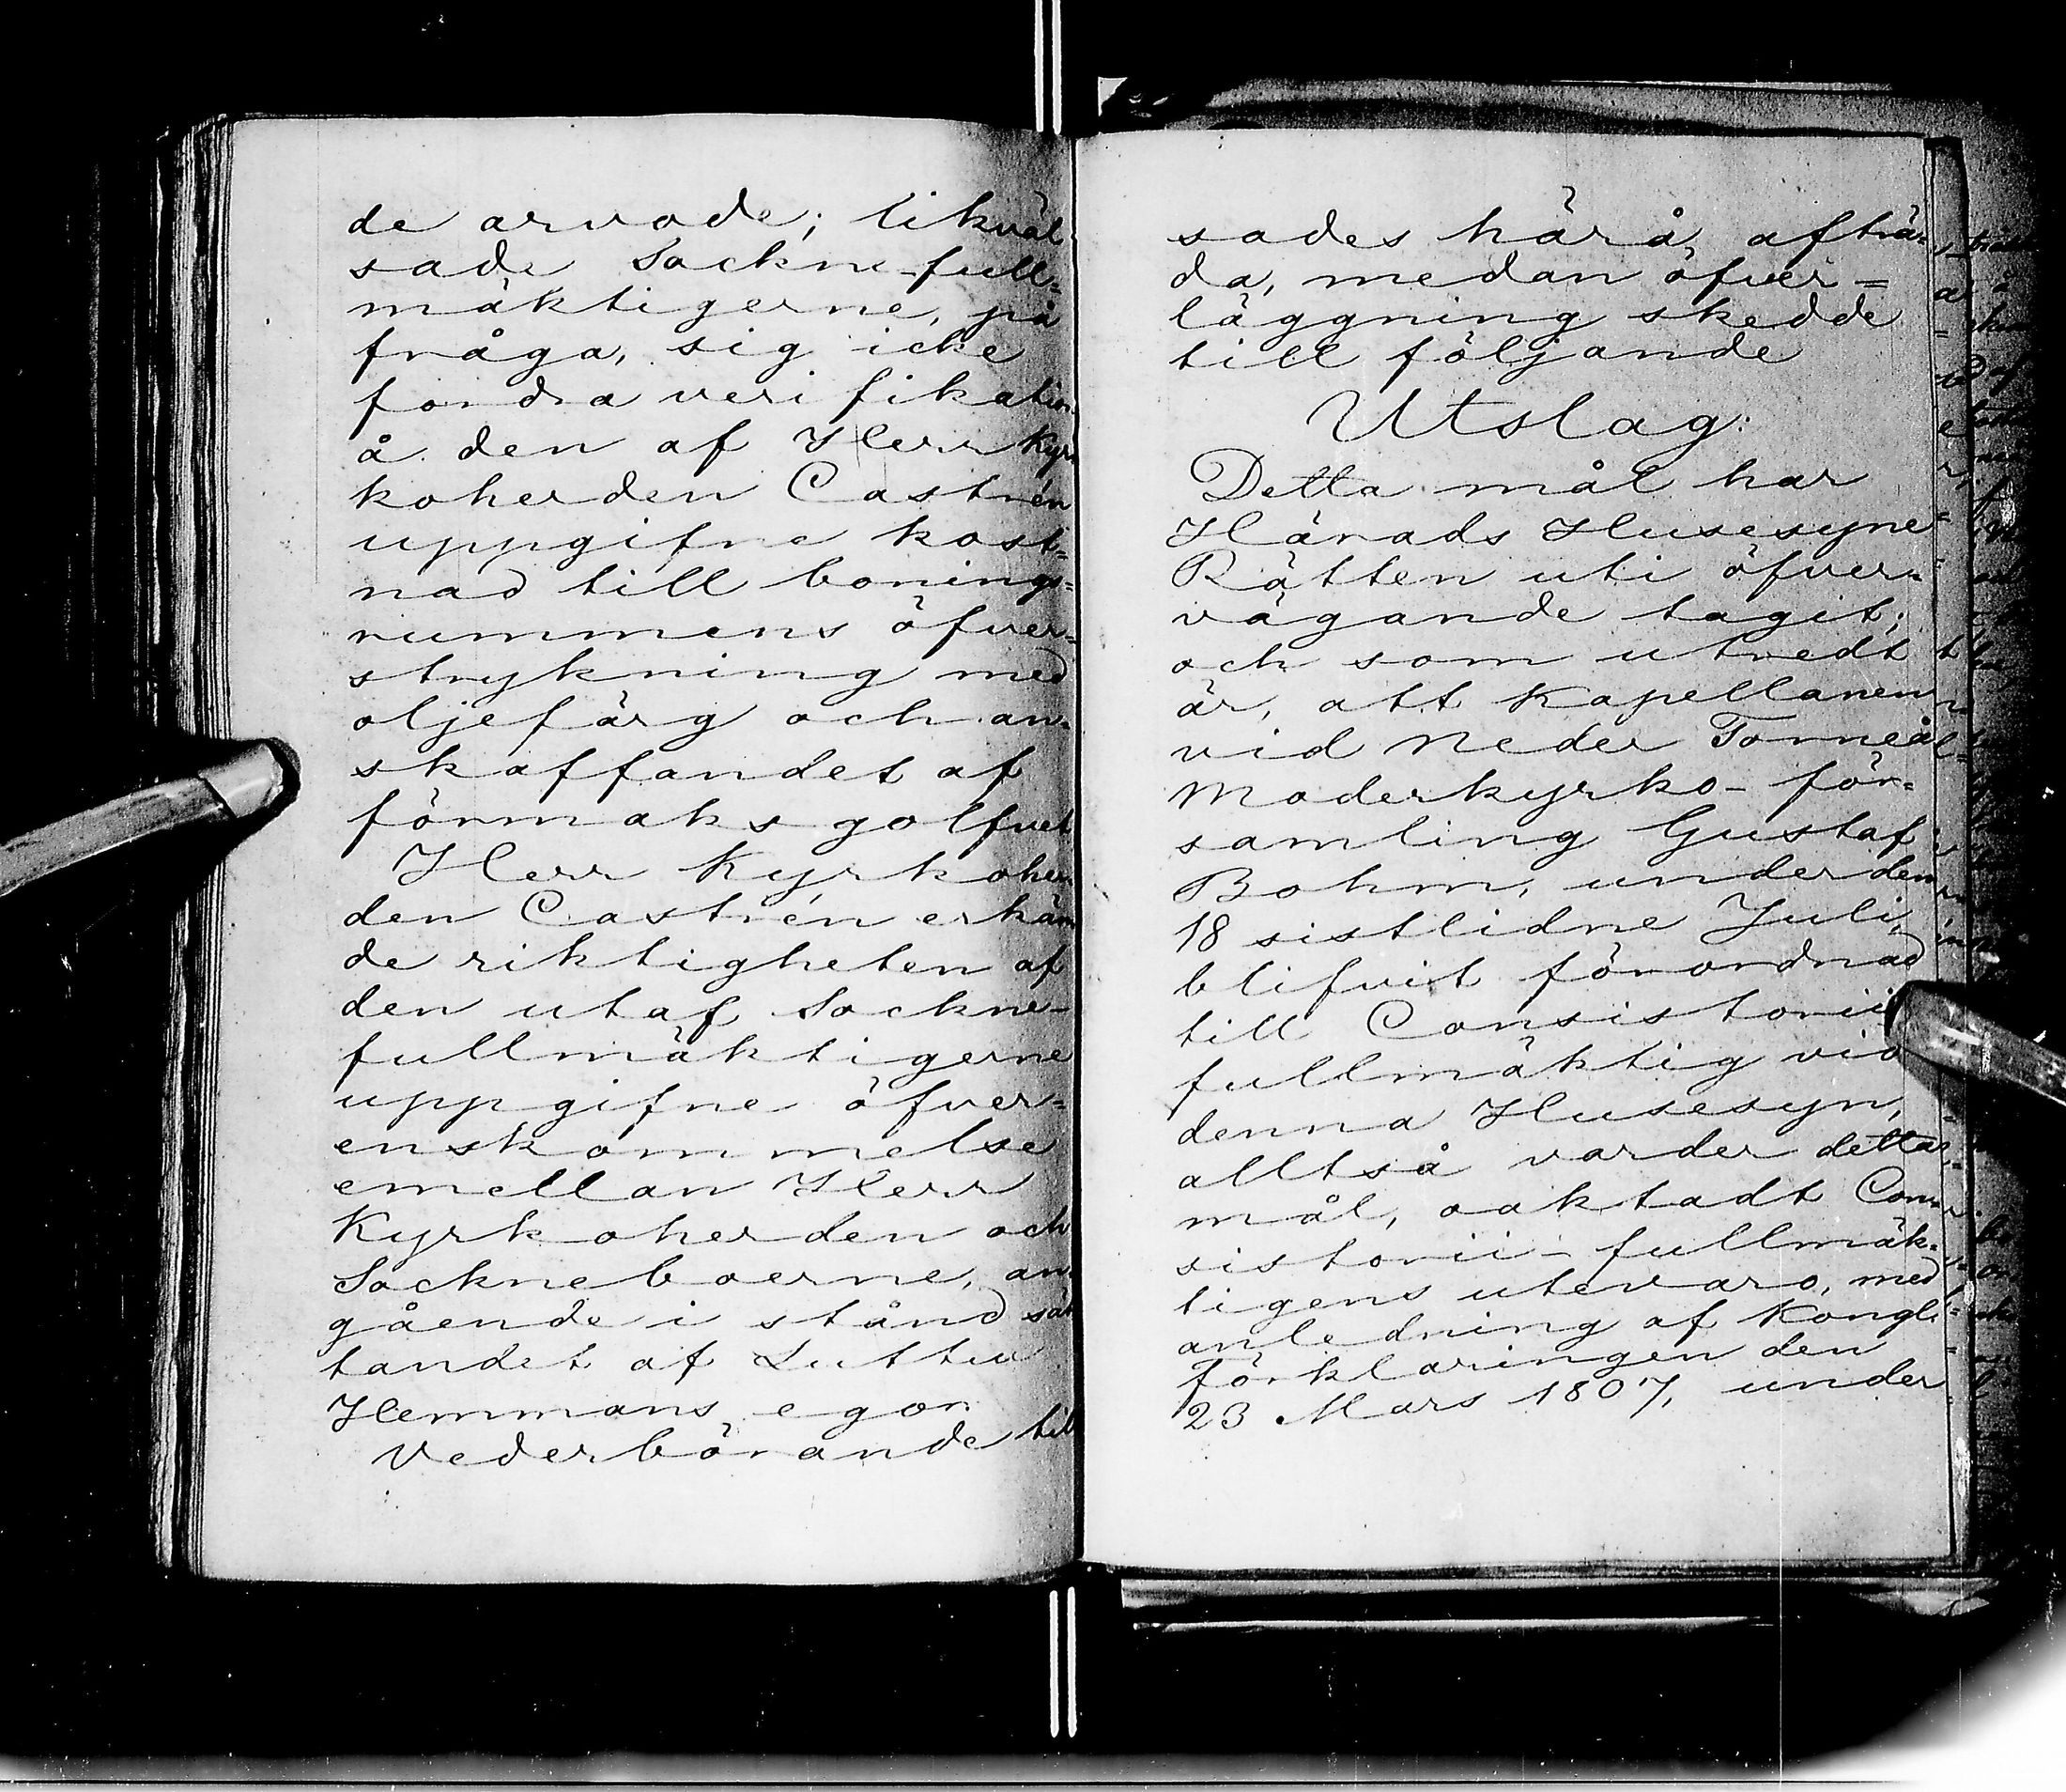 de arvode; likväl
sade Sockne-full=
mäktigerne, på
fråga, sig icke
fordra verifikation
å den af Herr Kyr
koherden Castrén
uppgifne kost=
nad till bonings=
rummens öfver=
strykning med
oljefärg och an=
skaffandet af
förmaks golfvet
Herr Kyrkoher
den Castrén erkän
de riktigheten af
den utaf Sockne-
fullmäktigerne
uppgifne öfver=
enskommelse
emellan Herr
Kyrkoherden och
Sockneboerne, an=
gående i stånd sät
tandet af Luttu
Hemmans egor
Vederbörande till
sades härå, afträ-
da, medan öfver=
läggning skedde
till följande
Utslag:
Detta mål har
Härads Husesyne
Rätten uti öfver=
vägande tagit;
och som utredt
är, att Kapellanen
vid Neder Torneå
Moderkyrko- för=
samling Gustaf
Bohm, under den
18 sistlidne Juli,
blifvit förordnad
till Consistorii
fullmäktig vid
denna Husesyn,
alltså varder detta
mål, oaktadt Con=
sistorii- fullmäk=
tigens utevaro, med
anledning af Kongl.
Förklaringen den
23 Mars 1807, under